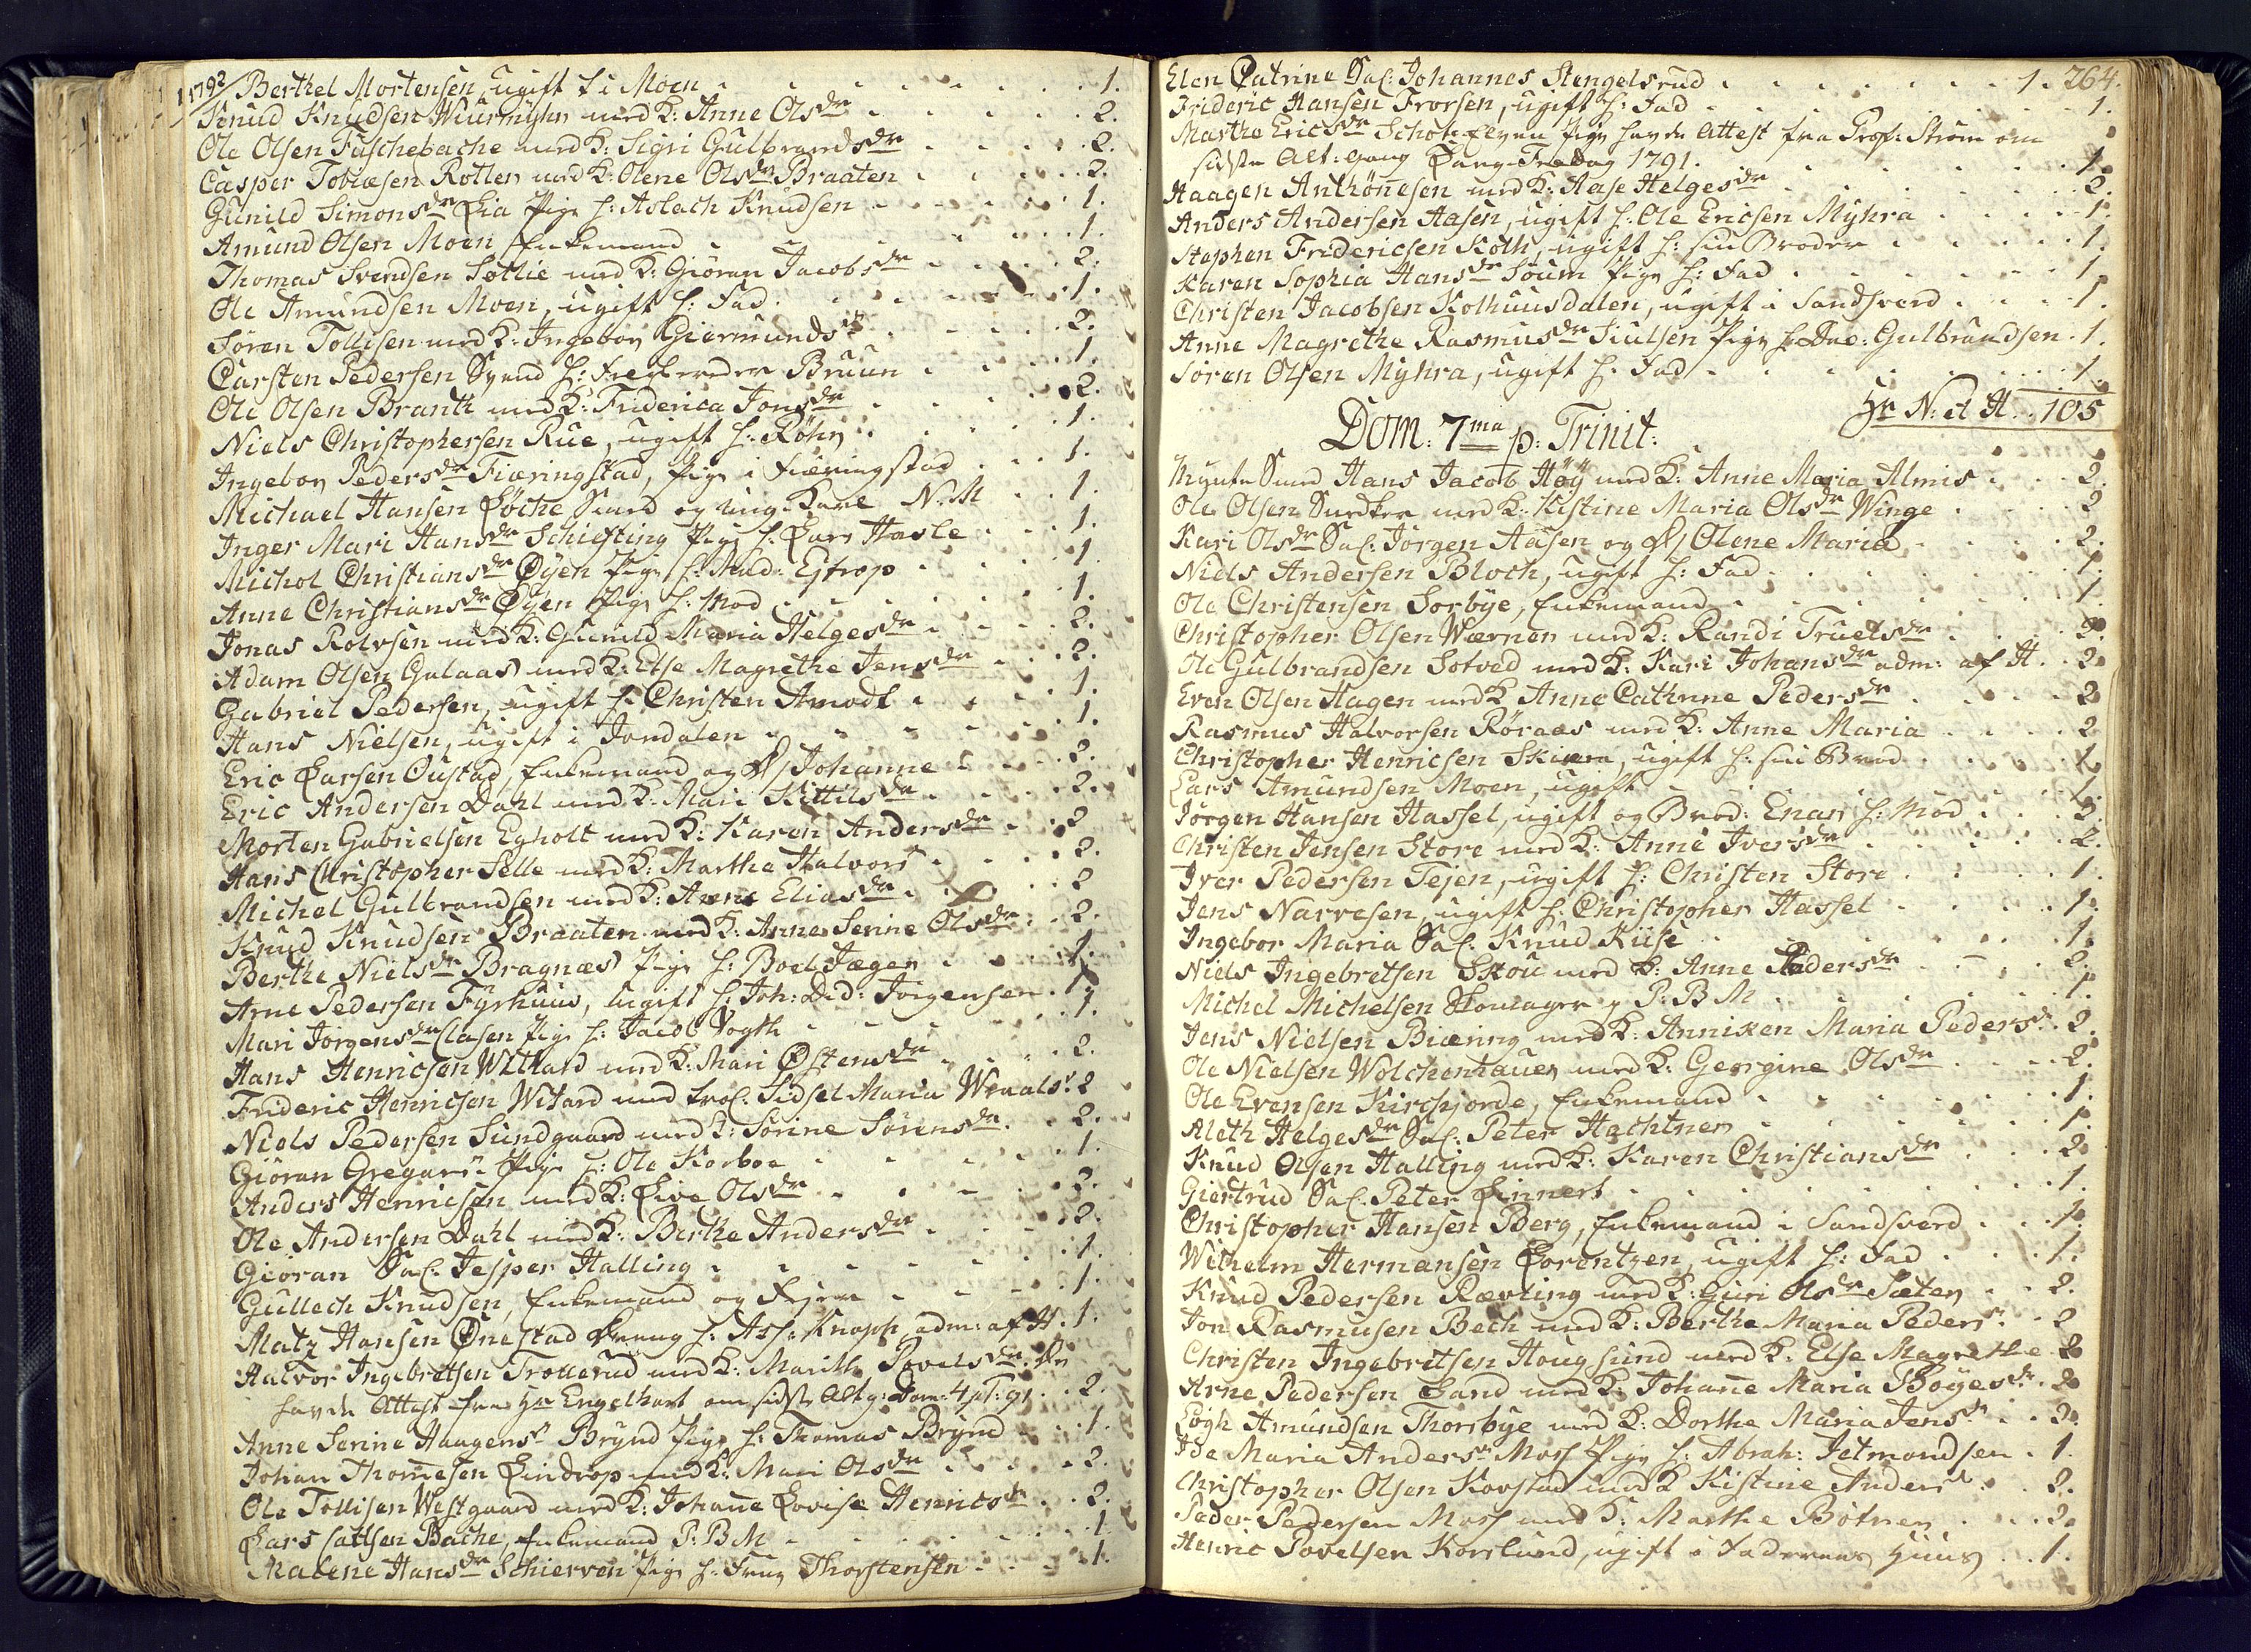 1792 Berthel Mortensen, ugift i Moen . . . 1.
Knud Knudsen Wiurmyhr med K: Anne Olsdr . . . 2.
Ole Olsen Fuschebache med K: Sigri Gulbrandsdr . . . 2.
Casper Tobiæsen Rotler med K: Olene Olsdr Braaten . . . 2.
Gunild Simonsdr Lia Pige h: Aslach Knudsen . . . 1.
Amund Olsen Moen Enkemand . . . 1.
Thomas Svendsen Sotlie med K: Giøran Jacobsdr . . . 2.
Ole Amundsen Moen, ugift h: Fad . . . 1.
Søren Tollisen med K: Ingebor Giermundsdr . . . 2.
Carsten Pedersen Svend h: Bruun . . . 1.
Ole Olsen Branth med K: Friderica Jonsdr . . . 2.
Niels Christophersen Rue, ugift h: Røhr . . . 1.
Ingebor Pedersdr Fiæringstad, Pige i Fiæringstad . . . 1.
Michael Hansen Løche Smed og ung Karl N. M . . . 1.
Inger Mari Hansdr Schiefting Pige h: Lars Hasle . . . 1.
Michol Christiansdr Øyen Pige h: Mad: Ejtrop . . . 1.
Anne Christiansdr Øyen Pige h: Mod . . . 1.
Jonas Rolvsen med K: Gunild Maria Helgesdr . . . 2.
Adam Olsen Gulaas med K: Else Magrethe Jensdr . . . 2.
Gabriel Pedersen, ugift h: Christen Amodt . . . 1.
Hans Nielsen, ugift i Jondalen . . . 1.
Eric Larsen Oustad, Enkemand og D/ Johanne . . . 2.
Eric Andersen Dahl med K: Mari Kittilsdr . . . 2.
Morten Gabrielsen Egholt med K: Karen Andersdr . . . 2
Hans Christopher Selle med K: Marthe Halvors . . . 2.
Michel Gulbrandsen med K: Anne Eliasdr . . . 2
Knud Knudsen Braaten med K: Anne Serine Olsdr . . . 2.
Berthe Nielsdr Bragnæs Pige h: Boel Jæger . . . 1.
Arne Pedersen Fyrhuus, ugift h: Joh: Did: Jørgensen . 1.
Mari Jørgensdr Clasen Pige h: Jacob Vogth . . . 1.
Hans Henricsen Withard med K: Mari Østensdr . . . 2.
Frideric Henricsen Witard med trol: Sidsel Maria Wraalsr: 2
Niels Pedersen Sundgaard med K: Sørine Sørensdr . . . 2.
Giøran Gregarsr Pige h: Ole Korboe . . . 1.
Anders Henricsen med K: Live Olsdr . . . 2.
Ole Andersen Dahl med K: Birthe Andersdr . . . 2.
Giøran Sal: Jesper Halling . . . 1.
Gullech Knudsen, Enkemand og . . . 1.
Matz Hansen Ønestad Dreng h: Ass: Knoph adm: af H. 1.
Halvor Ingebretsen Trollerud med K: Marithe Povelsdr.
havde Attest fra Hr Engelhart om sidste Altg: Dom: 4 p T: 91 . . 2.
Anne Serine Haagensr Brynd Pige h: Thomas Brynd . . . 1.
Johan Thomesen Lindrop med K: Mari Olsdr . . . 2.
Ole Tollisen Westgaard med K: Johane Lovise Henricsdr . . . 2.
Lars Battsen Bache, Enkemand P: B M . . . 1.
Malene Hansdr Schierven Pige h: Frue Thorstensen . . . 1.
Elen Catrine Sal: Johannes Stengelsrud . . . 1. 264.
Frideric Hansen Frorsen, ugift h: Fad . . . 1.
Marthe Ericsdr Pige havde Attest fra Prof: Strøm om
sidste Alt: gang Lang-Fredag 1791. . . . 1.
Haagen Anthonesen med K: Aase Helgesdr . . . 2.
Anders Andersen Aasen, ugift h: Ole Ericsen Myhra . . . 1.
Stephen Fridericsen Koth, ugift h: sin Broder . . . 1.
Karen Sophia Hansdr Soum Pige h: Fad . . . 1.
Christen Jacobsen Kolhuusdalen, ugift i Sandsverd . . . 1.
Anne Magrethe Rasmusdr Siulsen Pige h: Dae: Gulbrandsen . 1.
Søren Olsen Myhra, ugift h: Fad . . . 1.
Hr N: el H. . 105
Dom: 7ma p: Trinit:
Mynte Smed Hans Jacob Høy med K: Anne Maria Almis . . . 2.
Ole Olsen Snedker med K: Kistine Maria Olsdr Winge . . . 2
Kari Olsdr Sal: Jørgen Aasen og D/ Olene Maria . . . 2.
Niels Andersen Bloch, ugift h: Fad . . . 1.
Ole Christensen Sorbye, Enkemand . . . 1
Christopher Olsen Wærner med K: Randi Truelsdr . . . 2.
Ole Gulbrandsen Sotved med K: Kari Johansdr adm: af H . . 2.
Even Olsen Hagen med K Anne Cathrine Pedersdr . . . 2
Rasmus Halvorsen Røraas med K: Anne Maria . . . 2
Christopher Henricsen Skiøen, ugift h: sin Brod . . . 1
Lars Amundsen Moen, ugift . . . 1.
Jørgen Hansen Hassel, ugift og Brod: Enar h: Mod . . . 3.
Christen Jensen Store med K: Anne Iversdr . . . 2.
Iver Pedersen Tejen, ugift h: Christen Store . . . 1.
Jens Narvesen, ugift h: Christopher Hassel . . . 1.
Ingebor Maria Sal: Knud Riise . . . 1.
Niels Ingebretsen Skou med K: Anne Pedersdr . . . 2.
Michel Michelsen Skomager P: B M . . . 1.
Jens Nielsen Biæring med K: Anniken Maria Pedersr . 2.
Ole Nielsen Wolchenhauer med K: Georgine Olsdr . . . 2.
Ole Evensen Kirchjorde, Enkemand . . . 1.
Aleth Helgesdr Sal: Peter Hachtner . . . 1.
Knud Olsen Halling med K: Karen Christiansdr . . . 2.
Giertrud Sal: Peter Linnert . . . 1.
Christopher Hansen Berg, Enkemand i Sandsverd . . . 1.
Wilhelm Hermansen Lorentzen, ugift h: Fad . . . 1.
Knud Pedersen Rævling med K: Guri Olsdr Sæter . . . 2.
Jon Rasmusen Bech med K: Berthe Maria Pedersr . . 2
Christen Ingebritsen Hougsund med K: Else Magrethe 2
Arne Pedersen Sand med K: Johane Maria Bøyesdr . 2.
Eogh Amundsen Thorsbye med K: Dorthe Maria Jensr . . . 2.
Ide Maria Andersr Moss Pige h: Abrah: Jetmondsen . 1.
Christopher Olsen Korstad med K Kistine Andersr . . 2.
Peder Pedersen Moss med K: Marthe Botner . . . 2.
Henric Povelsen Korslund, ugift i Faderens Huus . . 1.